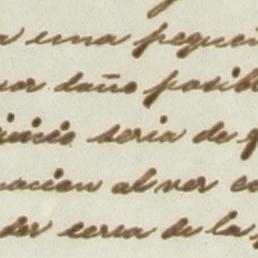 a una pequeñ
or daño posibl
inicio seria de g
nacion al ver c
der cerca de la